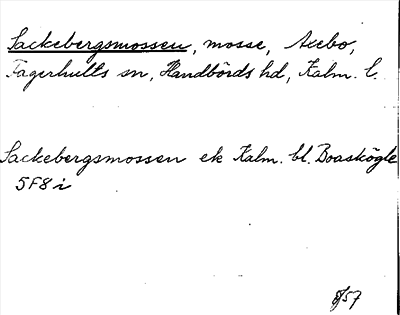 Sackebergsmossen, mosse, Axebo,
Fagerhults sn, Handbörds hd, Kalm. l.
Sackebergsmossen ek Kalm. bl. Boaskögle
5F8i
8/57